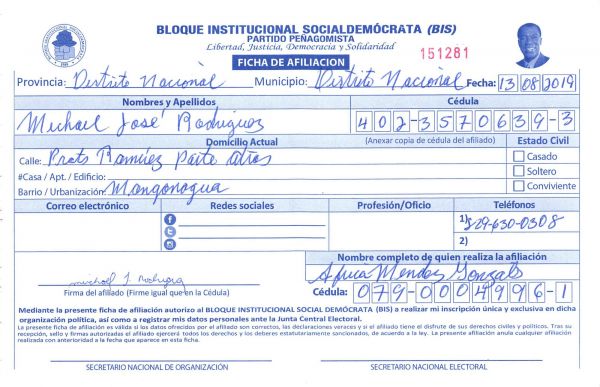 BLOQUE INSTITUCIONAL SOCIALDEMÓCRATA (BIS)
PARTIDO PEÑAGOMISTA
Libertad, Justicia, Democracia y Solidaridad
151281
FICHA DE AFILIACION
Provincia: Distrito Nacional Municipio: Distrito Nacional Fecha: 13 08 2019
Nombres y Apellidos Cédula
Michael José Rodriguez 402-3570639-3
Domicilio Actual (Anexar copia de cédula del afiliado) Estado Civil
Calle: Prats Ramirez Parte Atras Casado
#Casa / Apt. / Edificio: Soltero
Barrio / Urbanización: Mangonagua Conviviente
Correo electrónico Redes sociales Profesión/Oficio Teléfonos
1) 829-630-0308
2)
Nombre completo de quien realiza la afiliación
Africa Mendez Gonzalez
michael J Rodriguez
Firma del afiliado (Firme igual que en la Cédula) Cédula: 079-0004996-1
Mediante la presente ficha de afiliación autorizo al BLOQUE INSTITUCIONAL SOCIAL DEMÓCRATA (BIS) a realizar mi inscripción única y exclusiva en dicha
organización política, así como a registrar mis datos personales ante la Junta Central Electoral.
La presente ficha de afiliación es válida si los datos ofrecidos por el afiliado son correctos, las declaraciones veraces y si el afiliado tiene el disfrute de sus derechos civiles y políticos. Tras su
recepción, sello y firmas autorizadas el afiliado ejercerá todos los derechos y los deberes estatutariamente sancionados, de acuerdo a la ley. La presente afiliación anula cualquier afiliación
realizada con anterioridad a la fecha que aparece en esta ficha.
SECRETARIO NACIONAL DE ORGANIZACIÓN SECRETARIO NACIONAL ELECTORAL